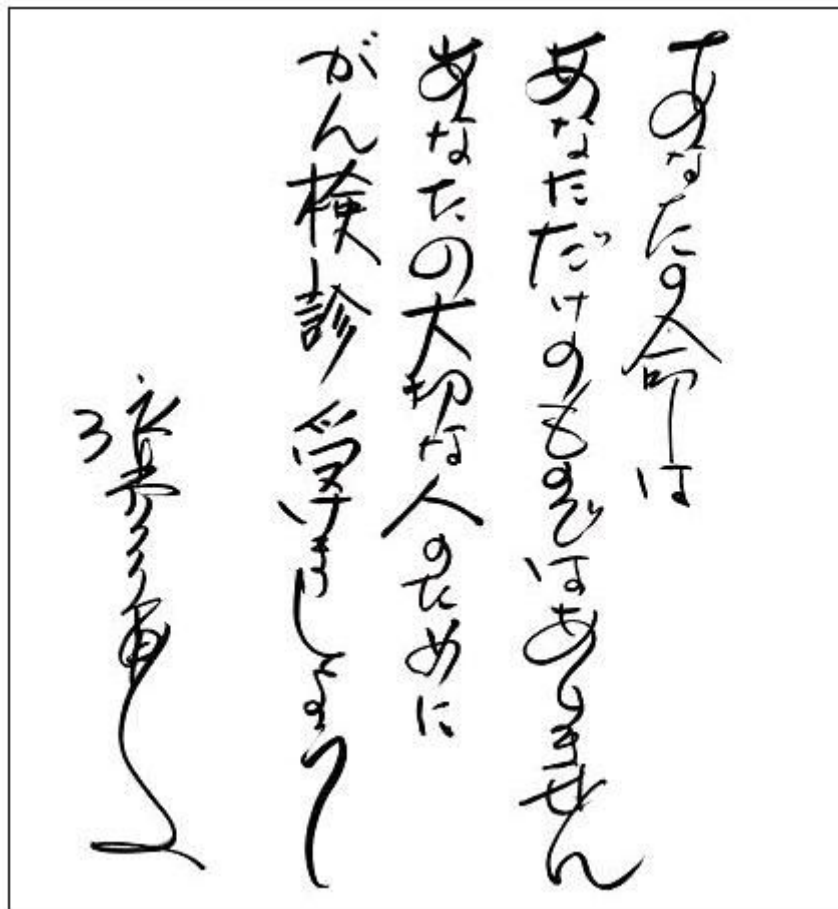 あなたの命は
あなただけのものではありません
あなたの大切な人のために
がん検診 受けましょう